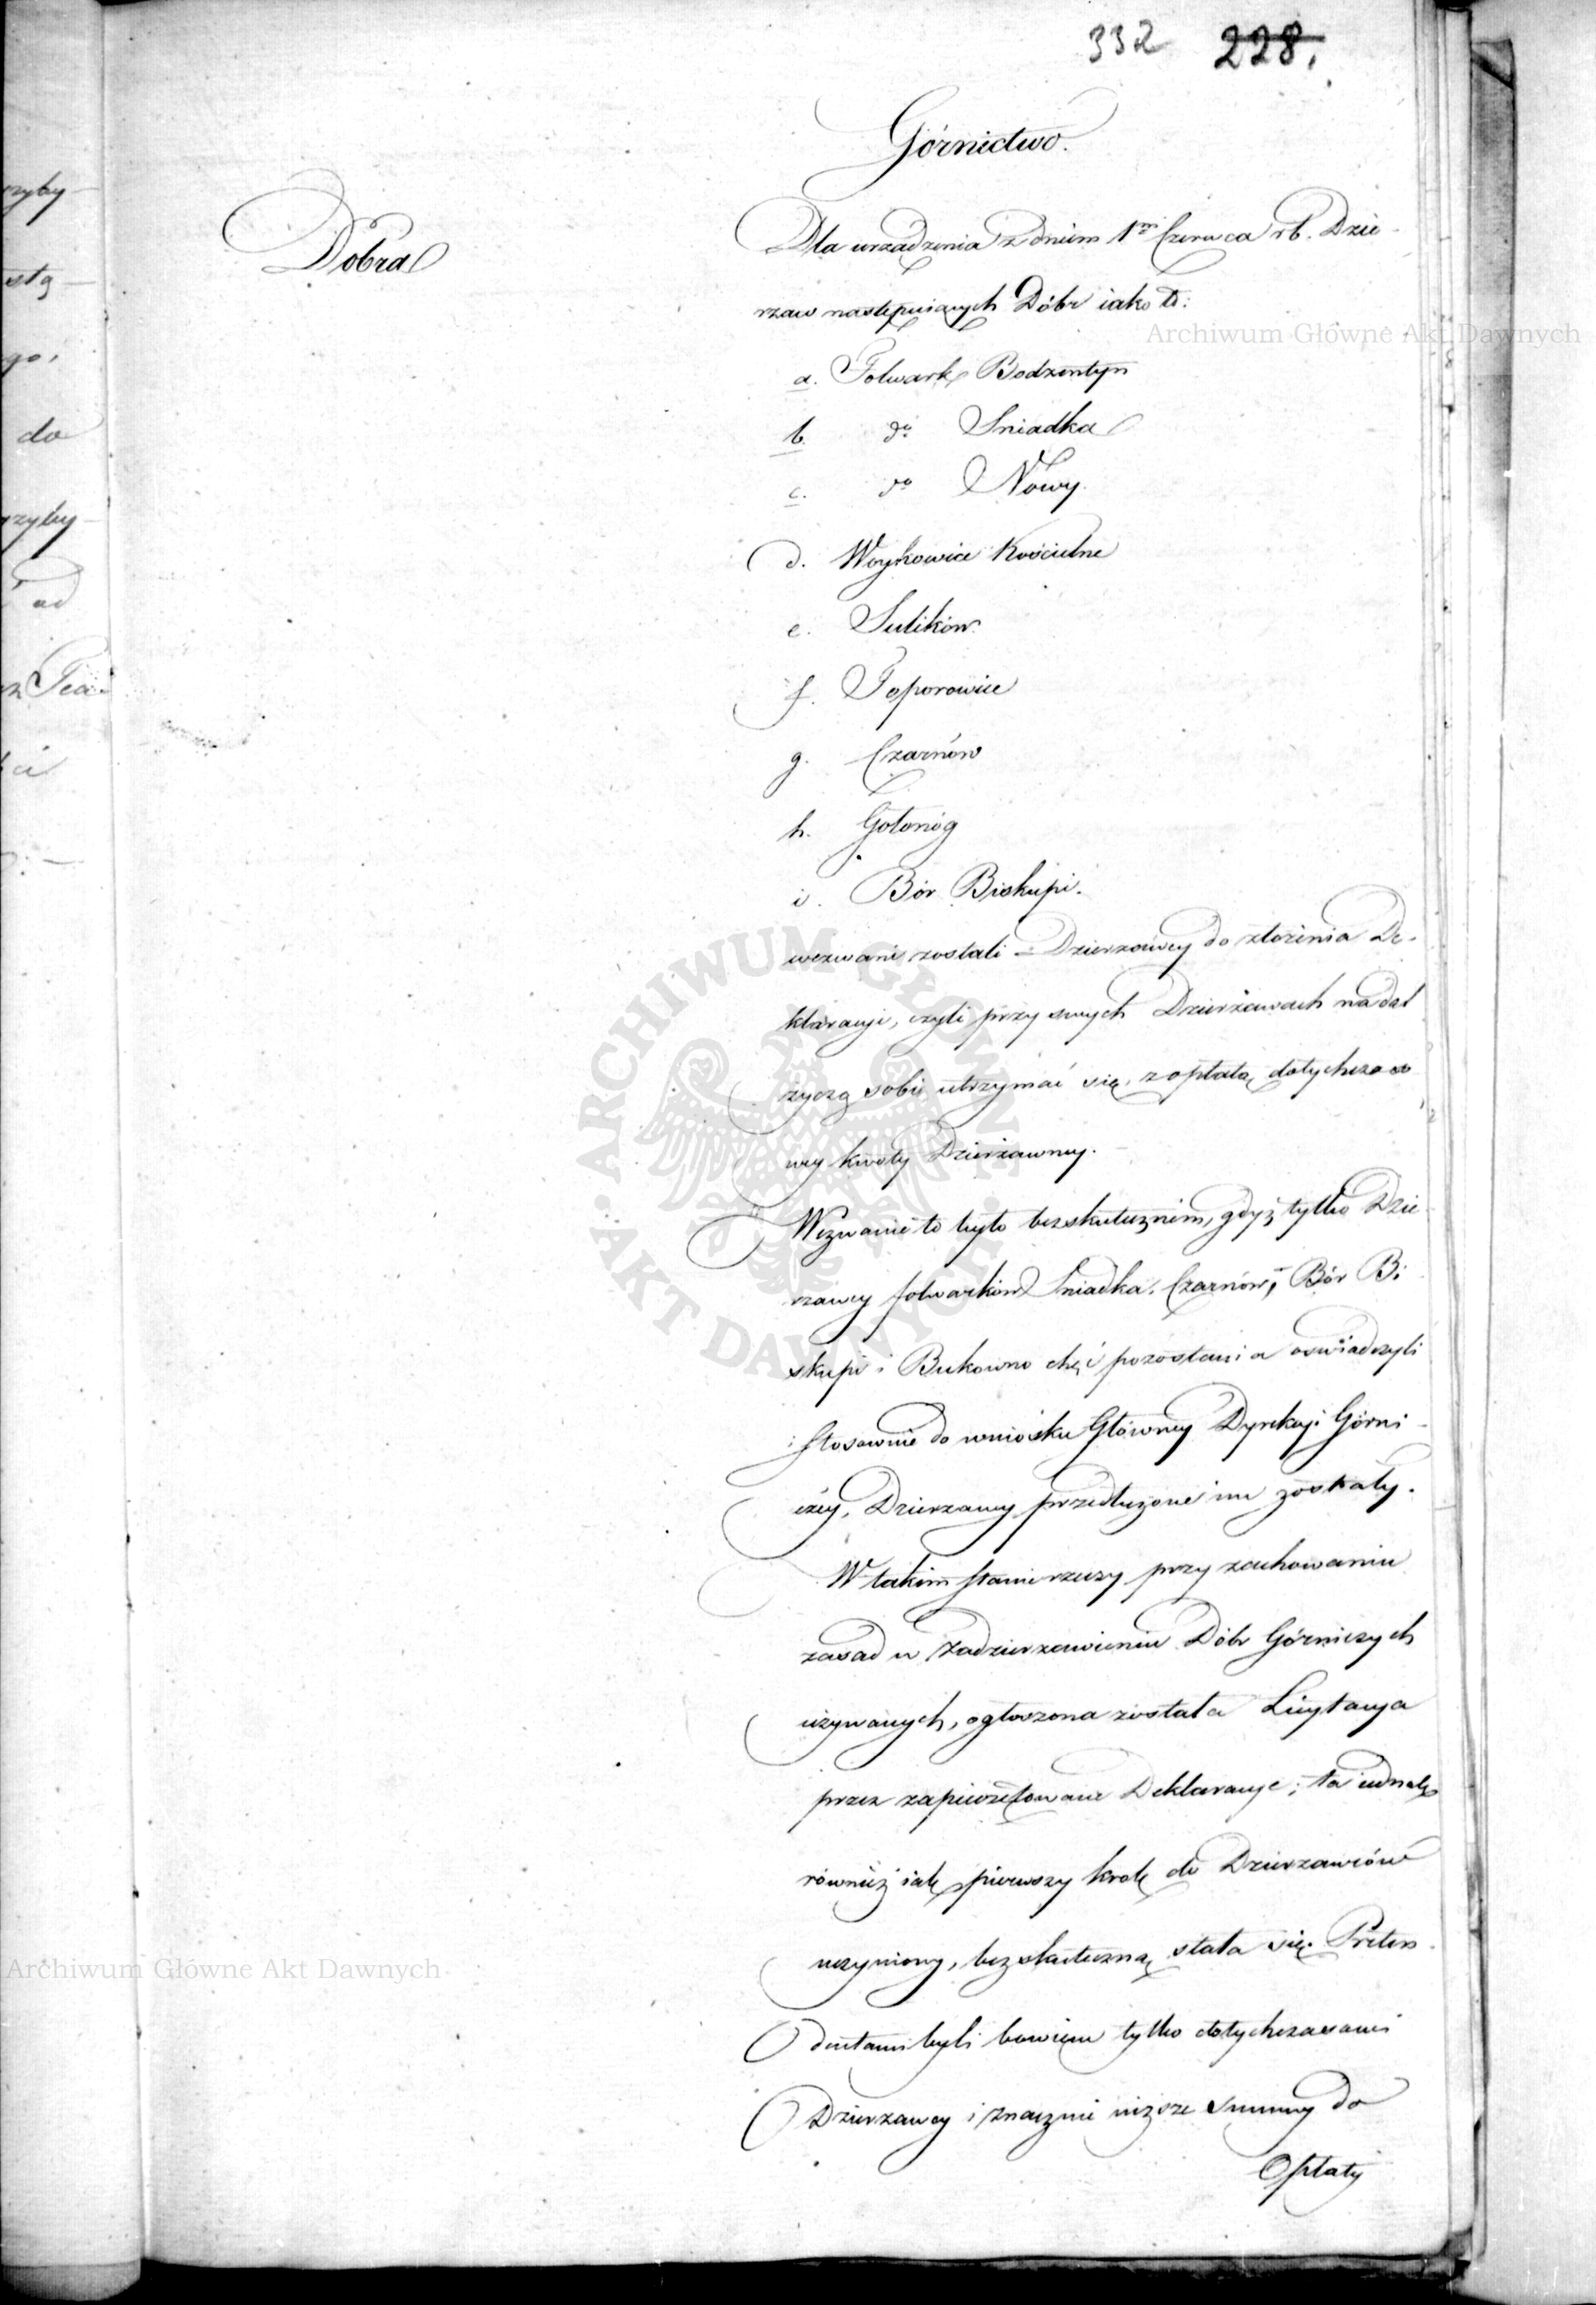 332 228.
Górnictwo.
Dobra
Dla urządzenia z dniem 1m Czerwca rb. Dzie-
rzaw następuiących Dóbr iako to:
a. Folwark Bodzentyn
b. do Sniadka
c. do Nowy.
d. Woykowice Kościelne
e. Sulików.
f. Toporowice
g. Czarnów
h. Gołonóg
i. Bór Biskupi.
wezwani zostali Dzierzawcy do złożenia De-
klaracyi, czyli przy swych Dzierżawach nadal
życzą sobie utrzymać się, z opłatą dotychczaso
wey kwoty Dzierżawney.
Wezwanie to było bezskutecznem, gdyż tylko Dzie
rzawcy folwarków Sniadka, Czarnów, Bór Bi
skupi i Bukowno chęć pozostania oswiadczyli
i stosownie do wniosku Głowney Dyrekcyi Górni-
czey, Dzierzawy przedłużone im zostały.
W takim stanie rzeczy przy zachowaniu
zasad w zadzierzawieniu Dóbr Górniczych
używanych, ogłoszona została Licytacya
przez zapieczętowane Deklaracye; ta iednak
również iak pierwszy krok do Dzierzawców
uczyniony, bezskuteczną stała się. Preten-
dentami byli bowiem tylko dotychczasowi
Dzierzawcy i znacznie niższe summy do
Opłaty
rzyby
stą
go,
do
rzyby
ad
Tea-
ci
Archiwum Główne Akt Dawnych
Archiwum Główne Akt Dawnych
ARCHIWUM GŁÓWNE AKT DAWNYCH